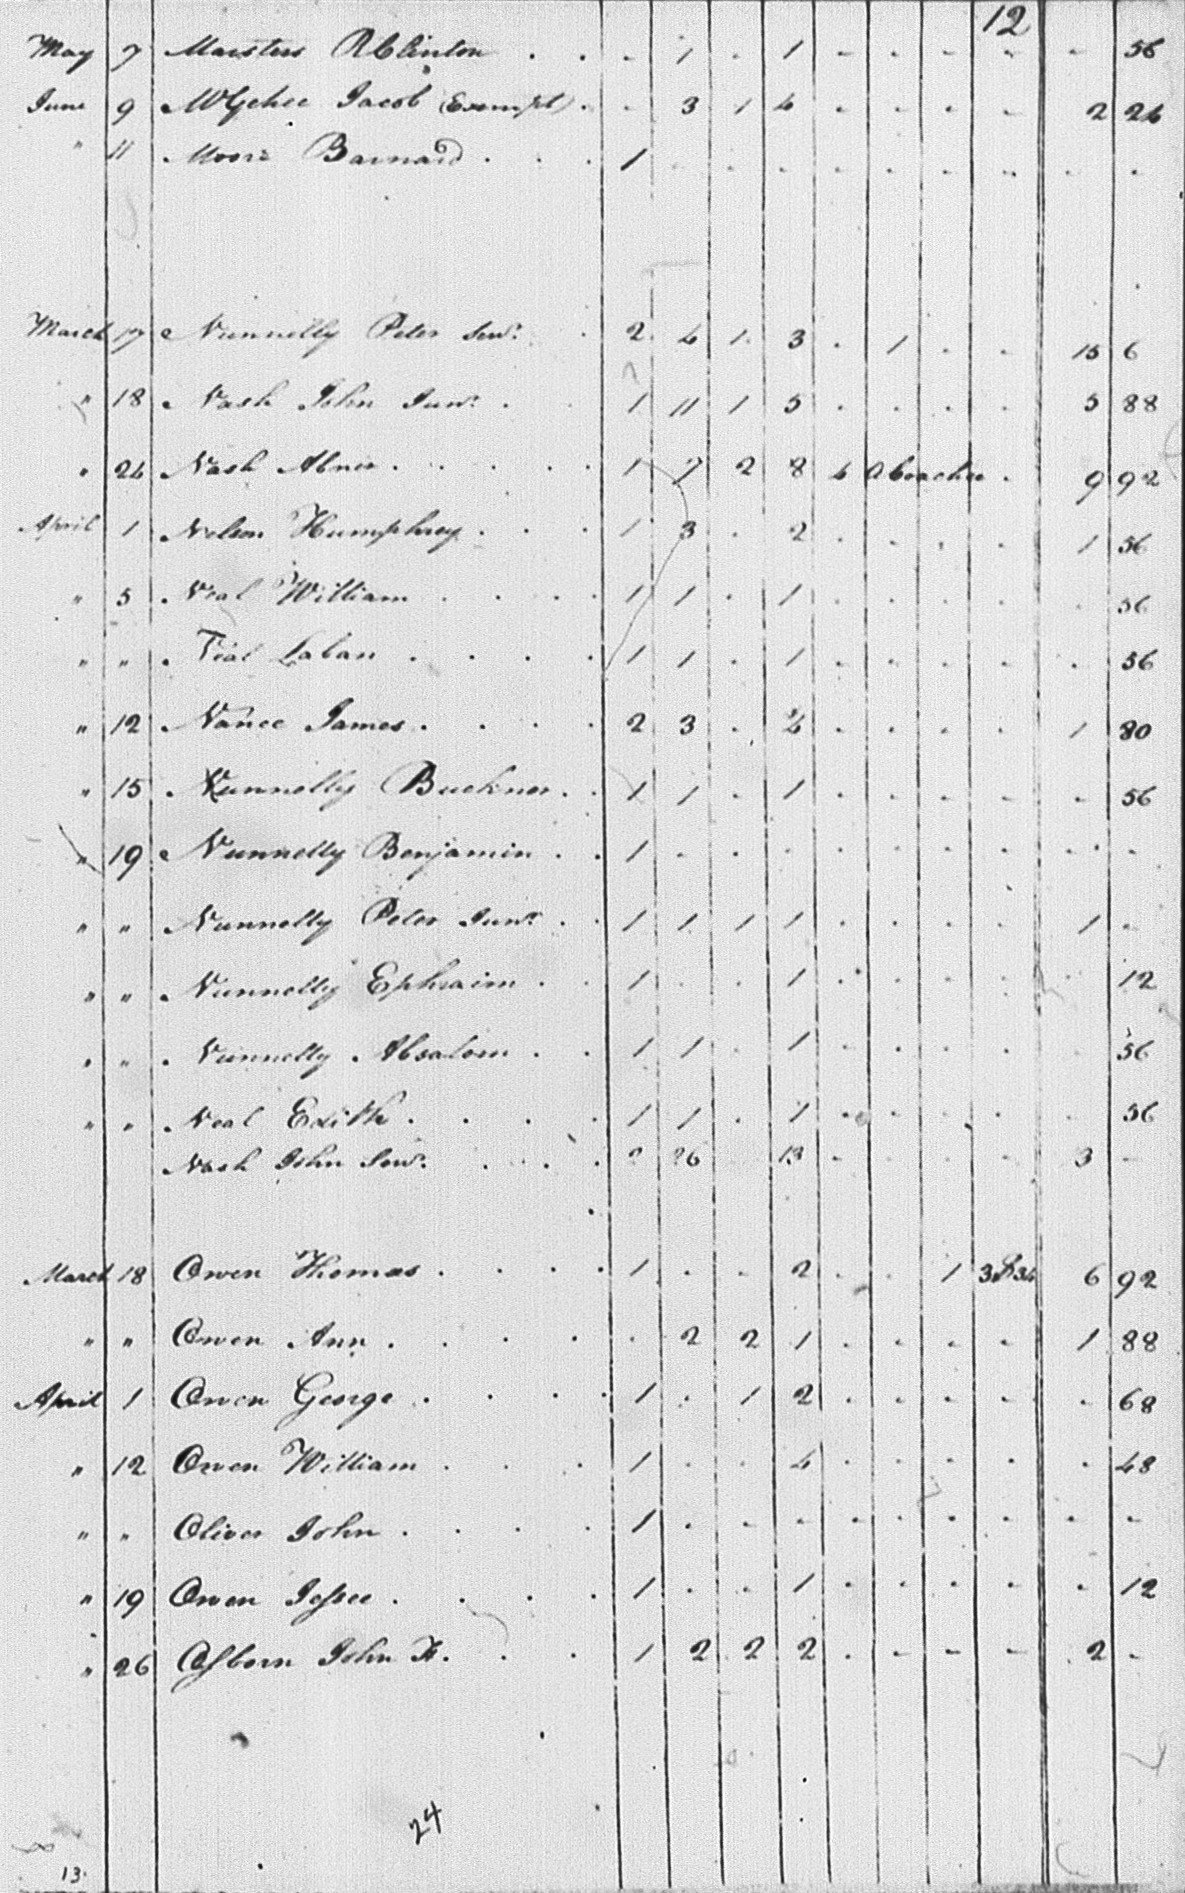 12
May 7 Marsters R Clinton . . - 1 . 1 - - - - - 56
June 9 McGehee Jacob (Exempt) . - 3 1 4 - - - - 2 24
" 11 Moore Barnard . . . 1 - - - - - - - - - -
March 17 Nunnelly Peter Senr. . 2 4 1 3 . 1 . . 15 6
" 18 Nash John Junr. . . 1 11 1 5 . . . . 5 88
" 24 Nash Abner . . . . . 1 7 2 8 4 a Coachee . 9 92
April 1 Nelson Humphrey . . . 1 3 . 2 . . . . 1 56
" 5 Neal William . . . . 1 1 . 1 . . . . . 56
" " Teal Laban . . . . 1 1 . 1 . . . . . 56
" 12 Nance James . . . . 2 3 . 4 . . . . 1 80
" 15 Nunnelly Buckner . . 1 1 . 1 . . . . - 56
" 19 Nunnelly Benjamin . . 1 . . . . . . . . -
" " Nunnelly Peter Junr. . . 1 1 1 1 . . . . 1 -
" " Nunnelly Ephraim . . 1 . . 1 . . . . . 12
" " Nunnelly Absalom . . 1 1 . 1 . . . . . 56
" " Neal Edith . . . . 1 1 . 1 . . . . . 56
Nash John Senr. . . . . 26 13 - - - - 3 -
March 18 Owen Thomas . . . . 1 . . 2 . . 1 6 92
" " Owen Ann . . . . . 2 2 1 . . . . 1 88
April 1 Owen George . . . . 1 . 1 2 . . . . . 68
" 12 Owen William . . . 1 . . 4 . . . . . 48
" " Oliver John . . . . 1 . - - - - - - - -
" 19 Owen Jessee . . . . 1 . . 1 . . . . . 12
" 26 Osborn John . . . 1 2 2 2 . - - - 2 -
24
13.